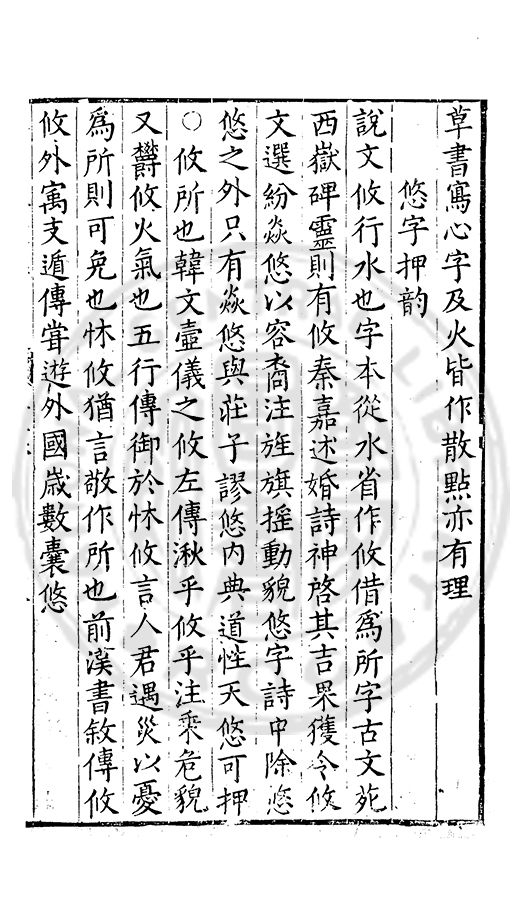 草書寫心字及火皆作散㸃亦有理
悠字押韵
說文攸行水也字本從水省作攸借爲所字古文苑
西嶽碑靈則有攸秦嘉述婚詩神啓其吉果獲令攸
文選紛焱悠以容裔注旌旗搖動貌悠字詩中除悠
悠之外只有焱悠與莊子謬悠內典道性天悠可押
○攸所也韓文壼儀之攸左傳湫乎攸乎注乘危貌
又欝攸火氣也五行傳御於怵攸言人君遇災以憂
爲所則可免也怵攸猶言敬作所也前漢書敘傳攸
攸外寓支遁傳甞遊外國歳數囊悠